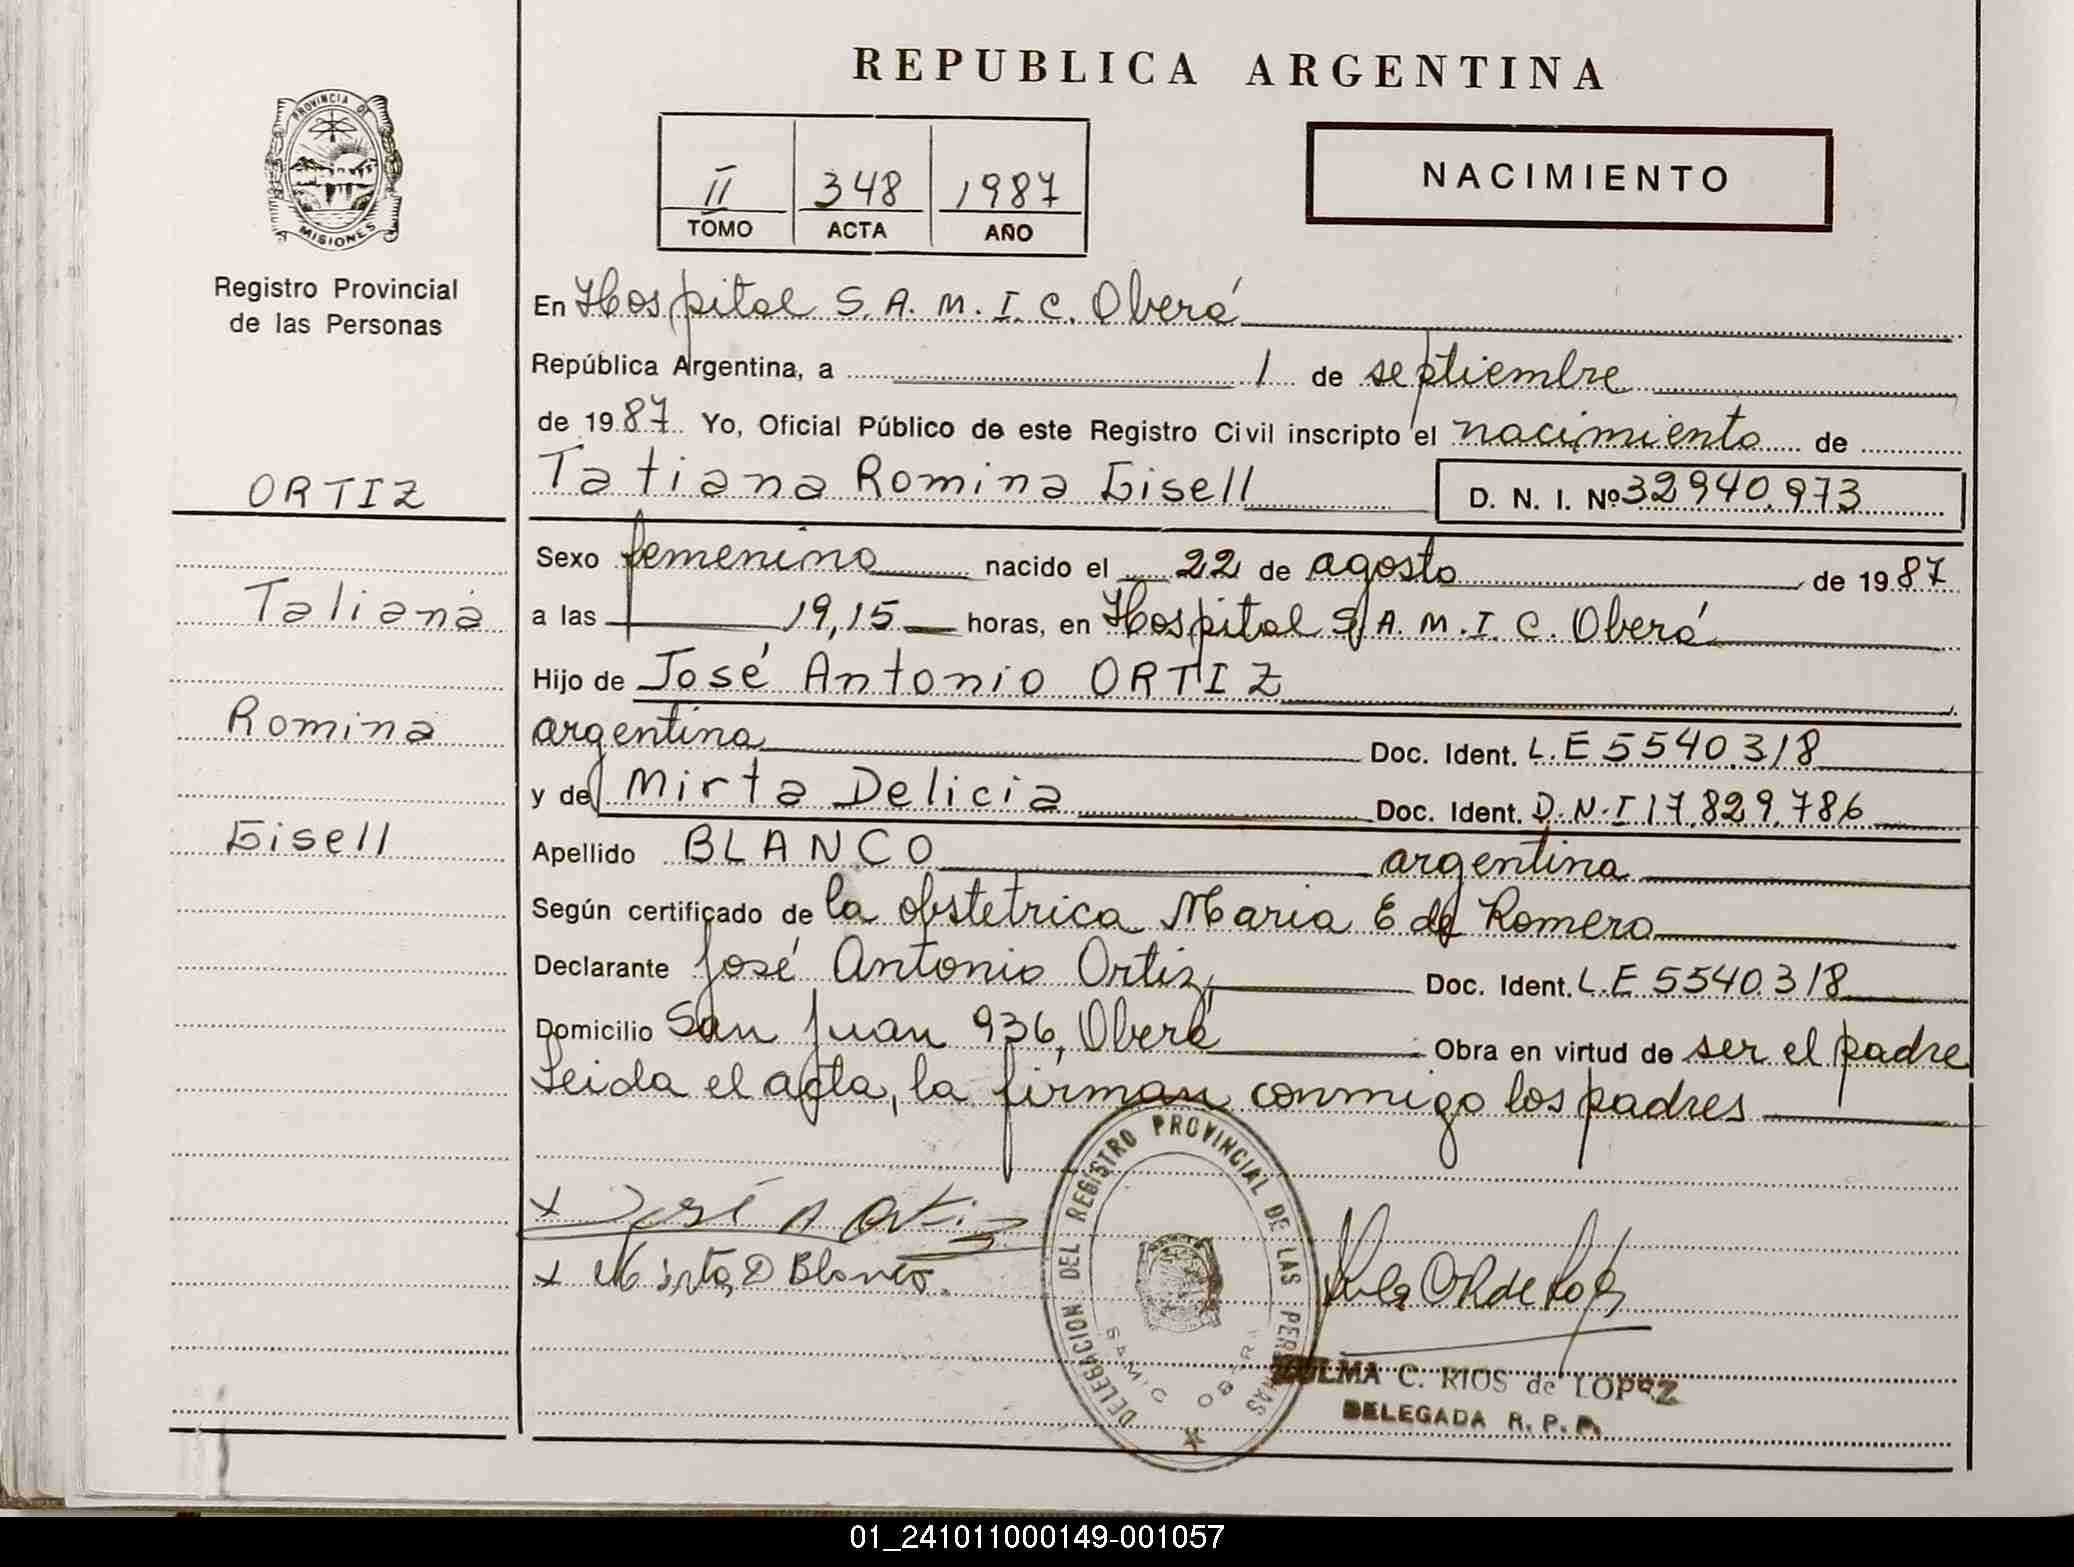 REPUBLICA ARGENTINA
PROVINCIA DE MISIONES
Registro Provincial
de las Personas
II 348 1987
TOMO ACTA AÑO
NACIMIENTO
En Hospital S.A.M.I.C. Oberá
República Argentina, a 1 de septiembre
de 1987 Yo, Oficial Público de este Registro Civil inscripto el nacimiento de
Tatiana Romina Gisell D. N. I. Nº 32940.973
ORTIZ
Tatiana
Romina
Gisell
Sexo femenino nacido el 22 de agosto de 1987
a las 19,15 horas, en Hospital S.A.M.I.C. Oberá
Hijo de José Antonio ORTIZ
argentina Doc. Ident. L.E 5540.318
y de Mirta Delicia Doc. Ident. D.N.I 17.829.786
Apellido BLANCO argentina
Según certificado de la obstetrica Maria E de Romero
Declarante José Antonio Ortiz, Doc. Ident. L.E 5540318
Domicilio San Juan 936, Oberá Obra en virtud de ser el padre
Leida el acta, la firman conmigo los padres
x José A Ortiz
x Mirta D Blanco.
DELEGACION DEL REGISTRO PROVINCIAL DE LAS PERSONAS
SAMIC OBERA
ZULMA C. RIOS de LOPEZ
DELEGADA R. P. P.
01_241011000149-001057